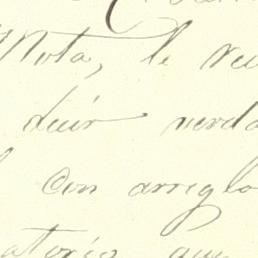 Nota, le
decir verda
Con arreglo
atorio que